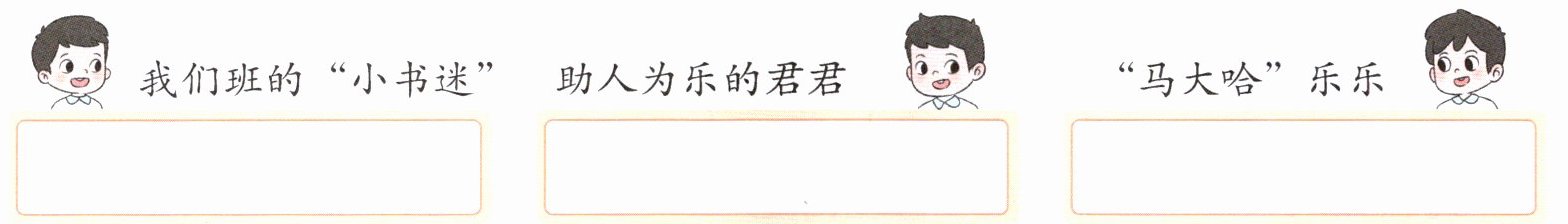 我们班的“小书迷” 助人为乐的君君 “马大哈”乐乐